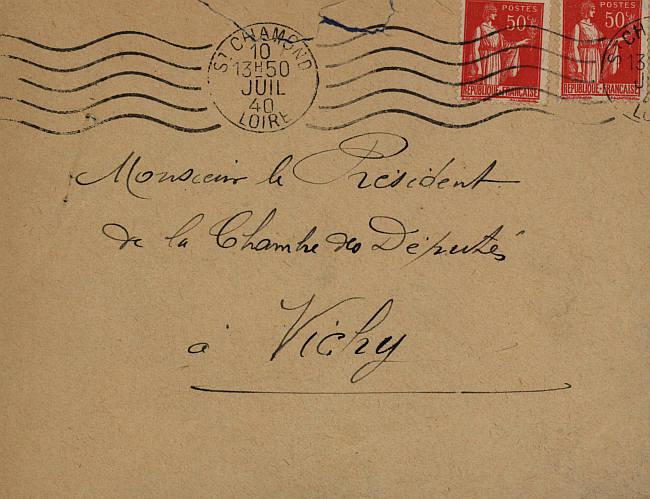 ST CHAMOND
10
13H50
JUIL
40
LOIRE
POSTES
50c
REPUBLIQUE-FRANÇAISE
POSTES
50c
REPUBLIQUE-FRANÇAISE
ST CH
13
J
4
LO
Monsieur le Président
de la Chambre des Députés
à Vichy